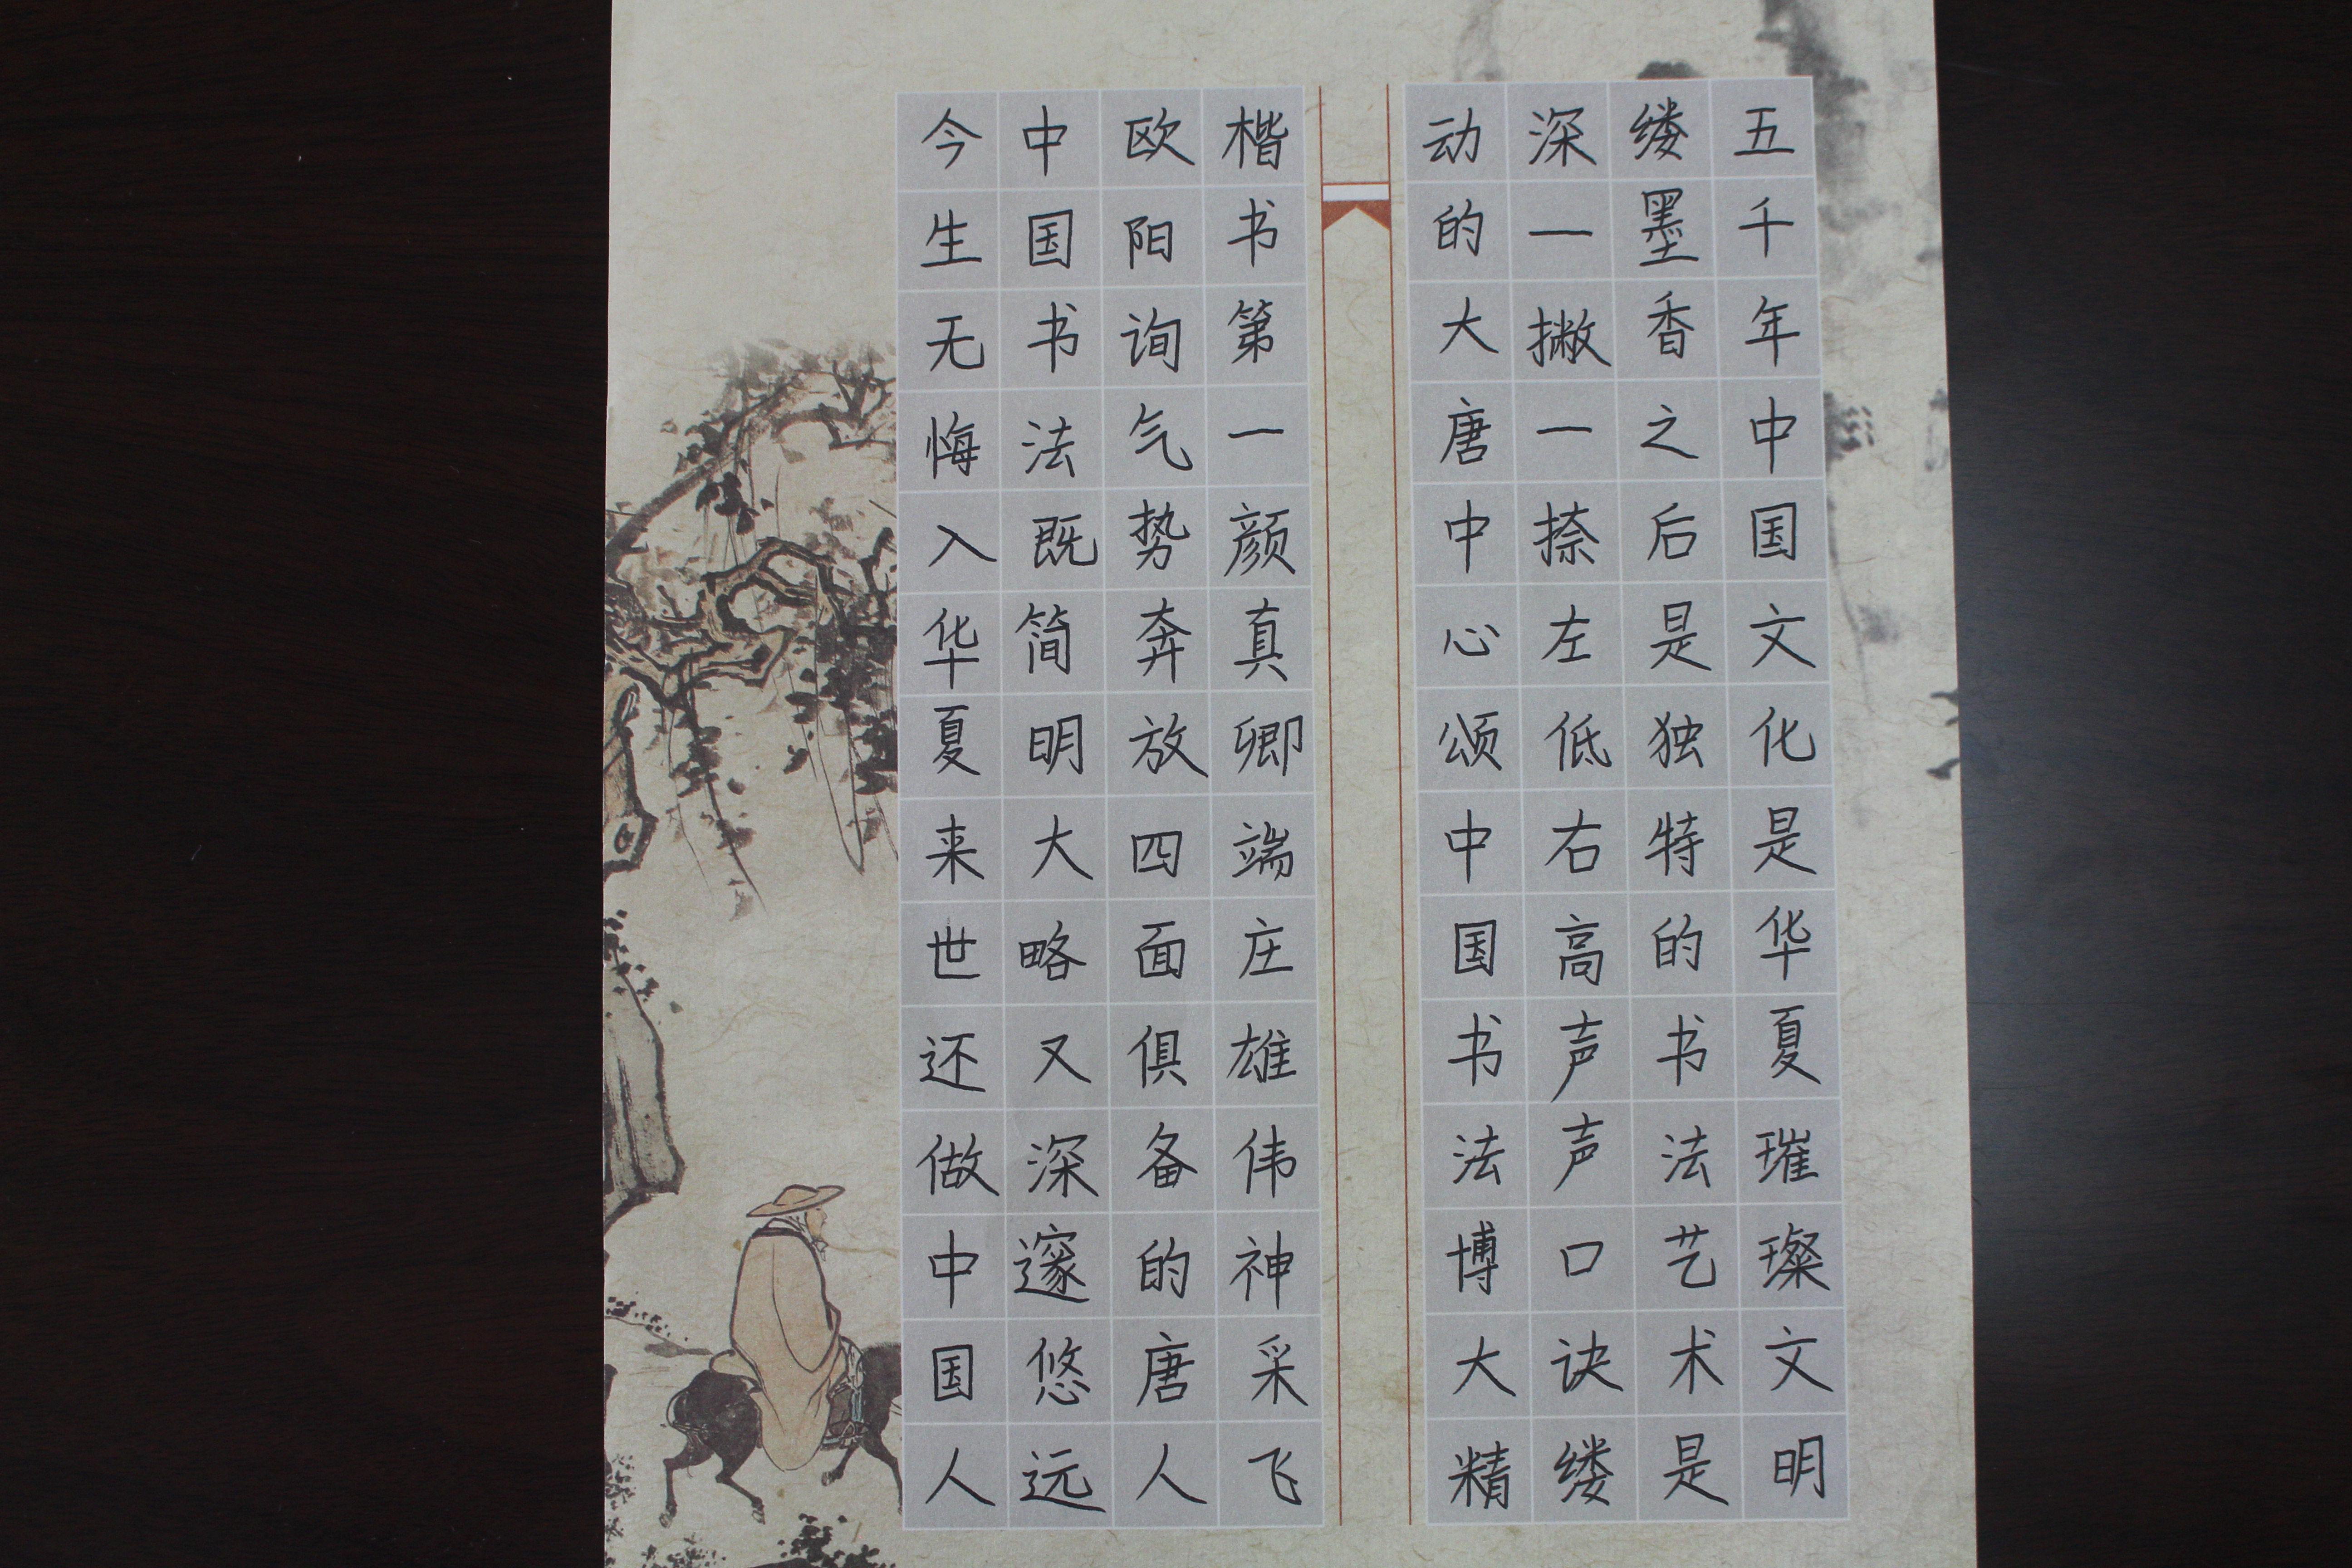 五千年中国文化是华夏璀璨文明
缕墨香之后是独特的书法艺术是
深一撇一捺左低右高声声口诀缕
动的大唐中心颂中国书法博大精
楷书第一颜真卿端庄雄伟神采飞
欧阳询气势奔放四面俱备的唐人
中国书法既简明大略又深邃悠远
今生无悔入华夏来世还做中国人